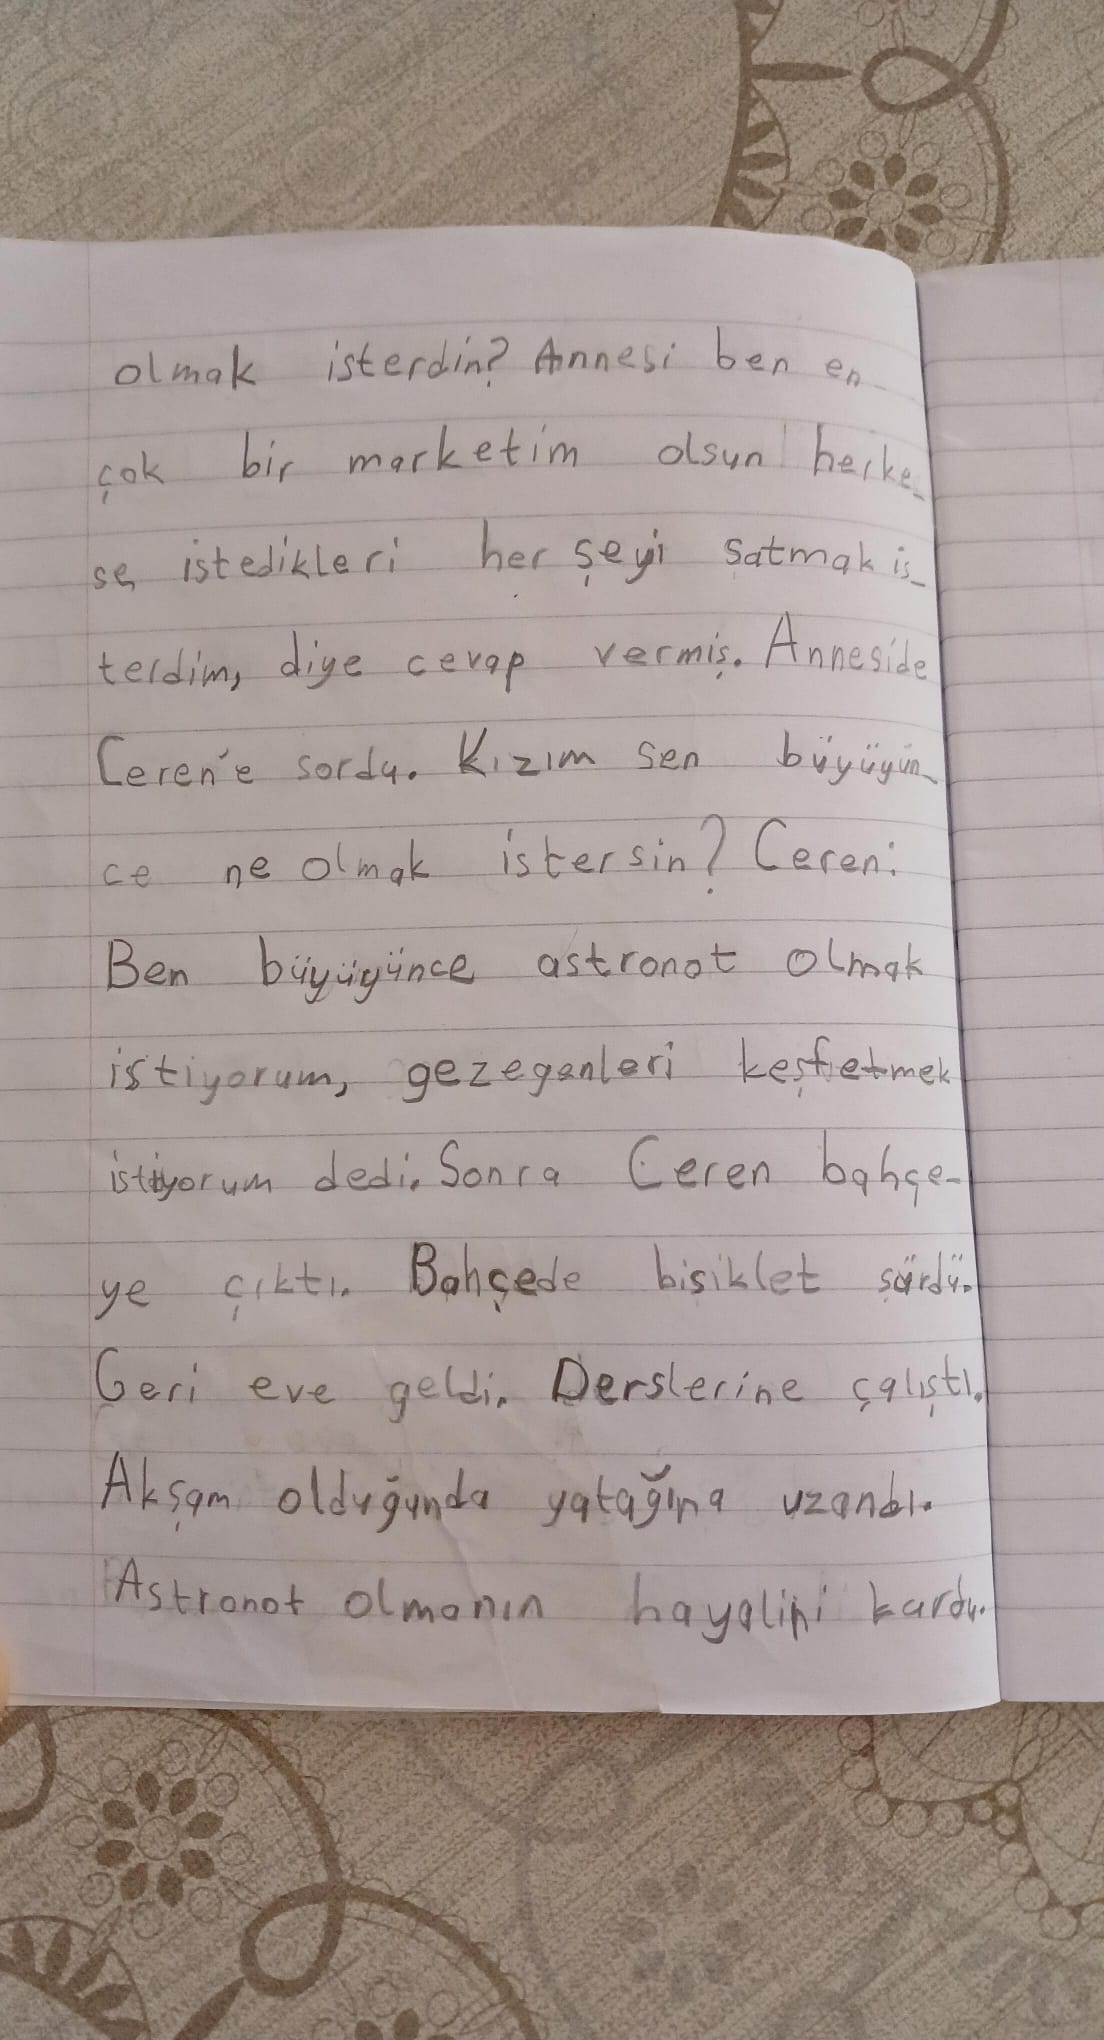 olmak isterdin? Annesi ben en
çok bir marketim olsun herke_
se istedikleri her şeyi satmak is_
terdim, diye cevap vermiş. Anneside
Ceren'e sordu. Kızım sen büyüyün_
ce ne olmak istersin? Ceren:
Ben büyüyünce astronot olmak
istiyorum, gezegenleri keşfetmek
istiyorum dedi. Sonra Ceren bahçe-
ye çıktı. Bahçede bisiklet sürdü.
Geri eve geldi. Derslerine çalıştı.
Akşam olduğunda yatağına uzandı.
Astronot olmanın hayalini kurdu.